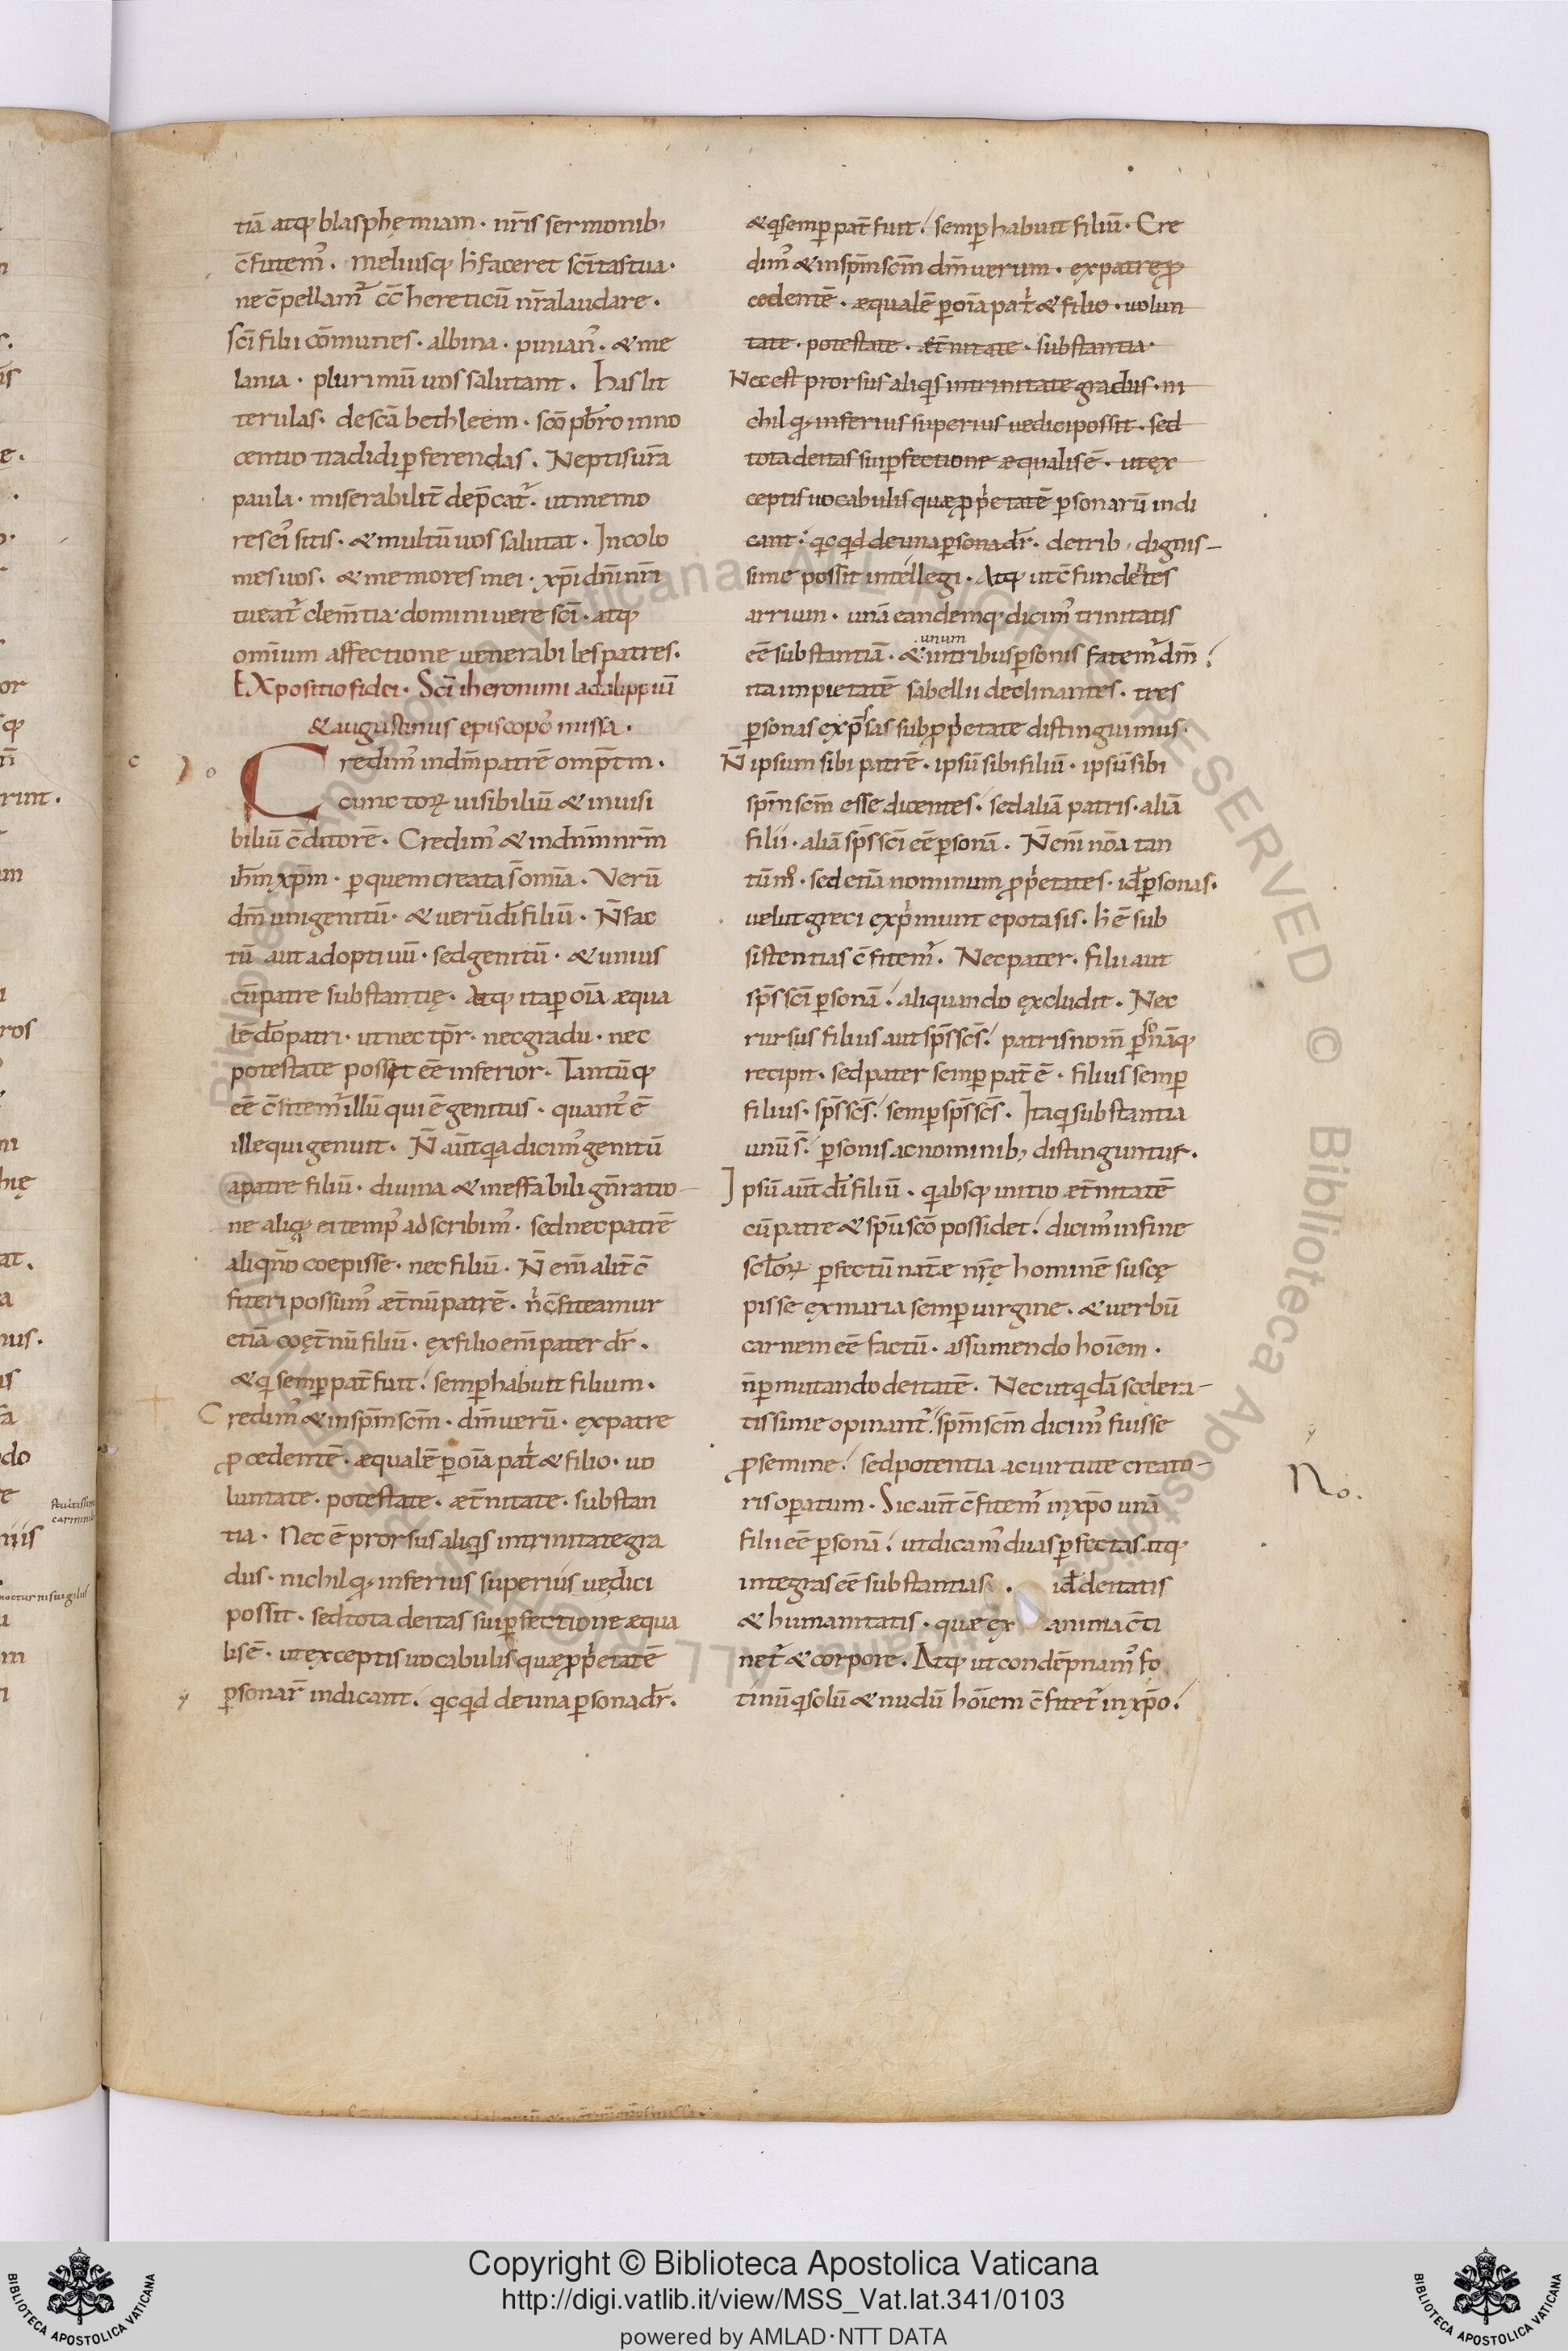 tiā atq; blasphęmiam · nr̄is sermonib;
c̄futem᷒ · meliusq; h̄ faceret sc̄itas tua ·
ne c̄pellam᷒ cc̄ hereticū nr̄a laudare ·
sc̄i filii cōmunes · albina · pinian᷒ · & me
lania · plurimū uos salutant · has lit
terulas · de sc̄a bethleem · sc̄o pb̄ro inno
centio tradidi ꝑferendas · Neptis ur̄a
paula · miserabilit̄ dep̄cat᷒ · ut memo
res ei᷒ sitis · & multū uos salutat · Incolo
mes uos · & memores mei · xp̄i dn̄i nr̄i
tueat᷒ clem̄tia · domini uere sc̄i · atq;
omīum affectione uenerabiles patres ·
EXpositio fidei · Sc̄i iheronimi ad alippiū
& augustinus episcopo᷒ missa ·
Credim᷒ in dm̄ patrē omp̄tm ·
cunctoꝝ uisibiliū & inuisi
biliū c̄ditorē · Credim᷒ & in dn̄m nr̄m
ih̄m xp̄m · ꝑ quem creata s̄ omīa · Verū
dm̄ unigenitū · & uerū dī filiū · N̄ fac
tū aut adoptiuū · sed genitū · & unius
cū patre substantię · Atq; ita ꝑ oīa æqua
lē dō patri · ut nec tp̄r · nec gradu · nec
potestate posset eē inferior · Tantūq;
eē c̄fitem᷒ illū qui ē genitus · quant᷒ ē
ille qui genuit · N̄ aūt quia dicim᷒ genitū
a patre filiū · diuina & ineffabili gn̄ratio-
ne aliq; ei temp᷒ adscribim᷒ · sed nec patrē
aliqn̄do coepisse · nec filiū · N̄ em̄ alit̄ c̄
fiteri possum᷒ æt̄nū patrē · n̄ c̄fiteamur
etiā coęt̄nū filiū · ex filio em̄ pater dr̄ ·
& qi semꝑ pat̄ fuit · semꝑ habuit filium ·
Credim᷒ & in sp̄m sc̄m · dm̄ uerū · ex patre
ꝓcedentē · æqualē ꝑ oīa patˈ & filio · uo
luntate · potestate · æt̄nitate · substan
tia · Nec ē prorsus aliqis in trinitate gra
dus · nichil q; inferius superius ue dici
possit · sed tota deitas sui ꝑfectione æqua
lis ē · ut exceptis uocabulis quæ ꝓpˈetatē
ꝑsonar̄ indicant · qicqid de una ꝑsona dr̄ ·
& qi semꝑ pat̄ fuit · semꝑ habuit filiū · Cre
dim᷒ & in sp̄m sc̄m dm̄ uerum · ex patre ꝓ
cedentē · æqualē ꝑ oīa patˈ & filio · uolun
tate · potestate · æt̄nitate · substantia ·
Nec est prorsus aliqis in trinitate gradus · ni
chil q; inferius superius ue dici possit · sed
tota deitas sui ꝑfectione æqualis ē · ut ex
ceptis uocabulis quæ ꝓpˈetatē ꝑsonarū indi
cant · qicqid de una ꝑsona dr̄ · de trib; dignis-
sime possit intellegi · Atq; ut c̄fundētes
arrium · unā eandemq; dicim᷒ trinitatis
unum
eē substantiā · & in tribus ꝑsonis fatem᷒ dm̄ ·
ita impietatē sabellii declinantes · tres
ꝑsonas exp̄ssas sub ꝓpˈetate distinguimus ·
N̄ ipsum sibi patrē · ipsū sibi filiū · ipsū sibi
sp̄m sc̄m esse dicentes · sed aliā patris · aliā
filii · aliā sp̄s sc̄i eē ꝑsonā · N̄ em̄ nōa tan
tūm᷒ · sed etiā nominum ꝓpˈetates · id̄ ꝑsonas ·
uelut greci expˈmunt epotasis · h̄ ē sub
sistentias c̄fitem᷒ · Nec pater · filii aut
sp̄s sc̄i ꝑsonā · aliquando excludit · Nec
rursus filius aut sp̄s sc̄s · patris nom̄ ꝑsonāq;
recipit · sed pater semꝑ pat̄ ē · filius semꝑ
filius · sp̄s sc̄s · semꝑ sp̄s sc̄s · Itaq; substantia
unū s̄ · ꝑsonis ac nominib; distinguntur ·
Ipsū aūt dī filiū · qi absq; initio æt̄nitatē
cū patre & sp̄u sc̄o possidet · dicim᷒ in fine
scl̄oꝝ ꝑfectū nat̄æ nr̄ę hominē suscę
pisse ex maria semꝑ uirgine · & uerbū
carnem eē factū · assumendo hoīem ·
n̄ ꝑmutando deitatē · Nec ut qidā scelera-
tissime opinant᷒ · sp̄m sc̄m dicim᷒ fuisse
ꝓ semine · sed potentia ac uirtute creato-
ris oꝑatum · Sic aūt c̄fitem᷒ in xp̄o unā
No.
filii eē ꝑsonā · ut dicam᷒ duas ꝑfectas atq;
integras eē substantias · id̄ deitatis
& humanitatis · quæ ex anima c̄ti
net᷒ & corpore · Atq; ut condēpnam᷒ fo
tinū qi solū & nudū hoīem c̄fitet᷒ in xp̄o ·
Copyright © Biblioteca Apostolica Vaticana
http://digi.vatlib.it/view/MSS_Vat.lat.341/0103
powered by AMLAD·NTT DATA
BIBLIOTECA APOSTOLICA VATICANA
BIBLIOTECA APOSTOLICA VATICANA